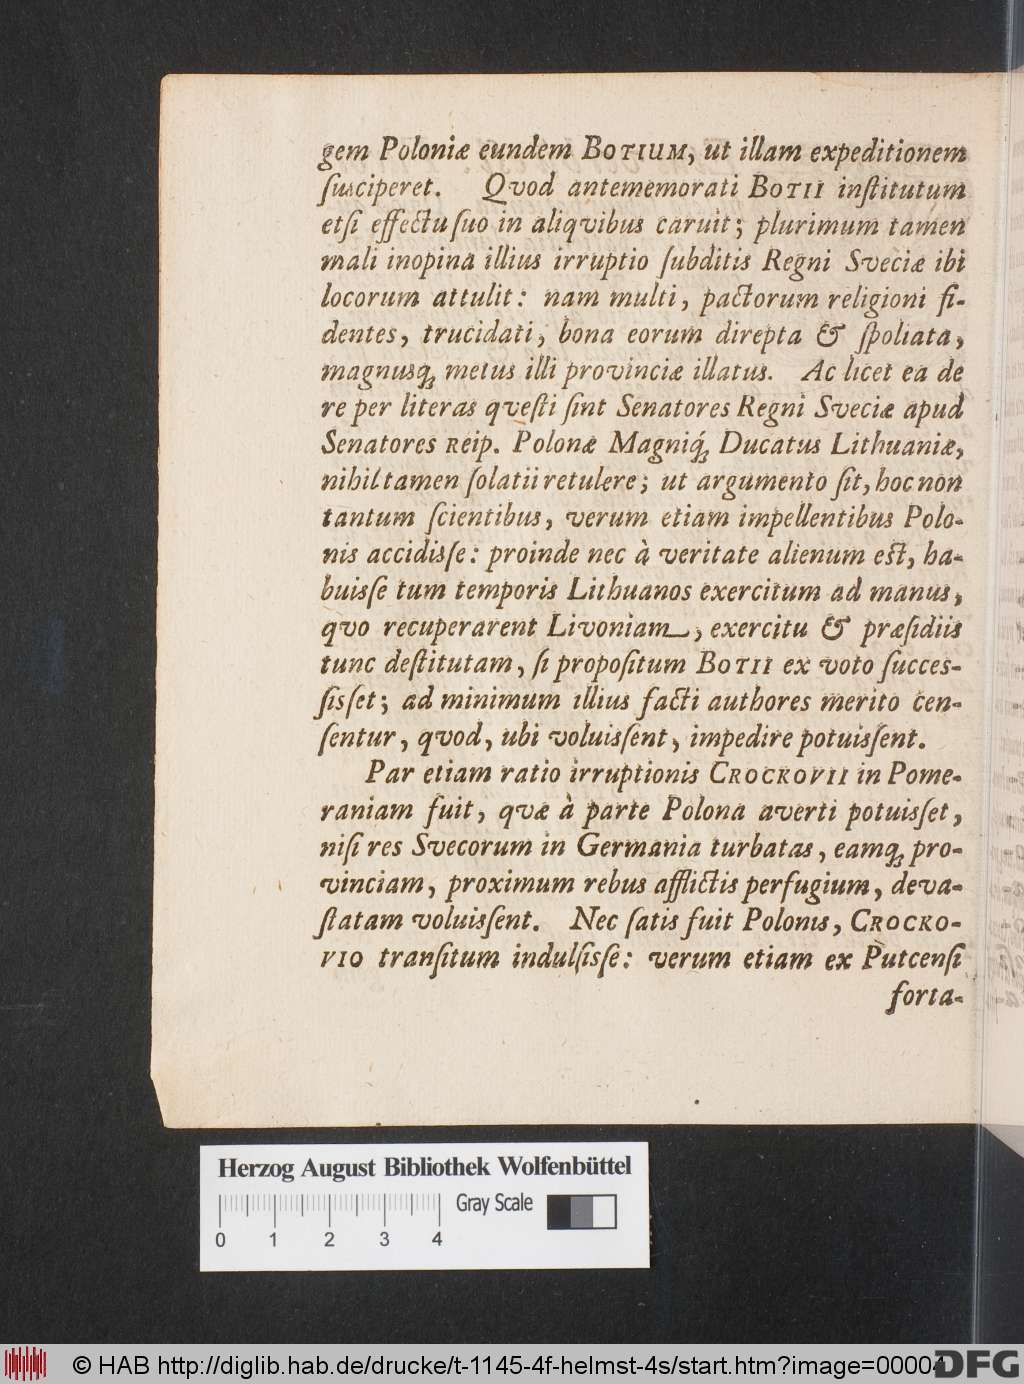 gem Poloniæ eundem BOTIUM, ut illam expeditionem
ſuſciperet. Qvod antememorati BOTII inſtitutum
etſi effectu ſuo in aliqvibus caruit; plurimum tamen
mali inopina illius irruptio ſubditis Regni Sveciæ ibi
locorum attulit: nam multi, pactorum religioni fi-
dentes, trucidati, bona eorum direpta & ſpoliata,
magnusq́; metus illi provinciæ illatus. Ac licet ea de
re per literas qveſti ſint Senatores Regni Sveciæ apud
Senatores Reip. Polonæ Magniq́; Ducatus Lithuaniæ,
nihil tamen ſolatii retulere; ut argumento ſit, hoc non
tantum ſcientibus, verum etiam impellentibus Polo-
nis accidisſe: proinde nec à veritate alienum est, ha-
buisſe tum temporis Lithuanos exercitum ad manus,
qvo recuperarent Livoniam, exercitu & præſidiis
tunc deſtitutam, ſi propoſitum BOTII ex voto ſucces-
ſisſet; ad minimum illius facti authores merito cen-
ſentur, qvod, ubi voluisſent, impedire potuisſent.
Par etiam ratio irruptionis CROCKOVII in Pome-
raniam fuit, qvæ à parte Polona averti potuisſet,
niſi res Svecorum in Germania turbatas, eamq; pro-
vinciam, proximum rebus afflictis perfugium, deva-
ſtatam voluisſent. Nec ſatis fuit Polonis, CROCKO-
VIO tranſitum indulſisſe: verum etiam ex Putcenſi
forta-
Herzog August Bibliothek Wolfenbüttel
Gray Scale
0 1 2 3 4
© HAB http://diglib.hab.de/drucke/t-1145-4f-helmst-4s/start.htm?image=00004
DFG